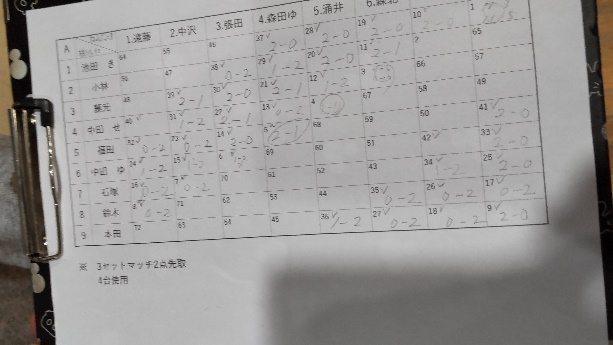 A 1.遠藤 2.中沢 3.張田 4.森田ゆ 5.涌井
1 池田 き 64 55 46 37 2-0 28 2-0 19 2-0 10 1
2 小林 56 47 38 0-2 29 1-2 20 2-0 11 2-1 7 65
3 藤元 48 39 2-1 30 2-0 21 2-1 12 1-2 3 66 57
4 中田 せ 40 31 1-2 22 2-1 13 0-2 4 67 58 49
5 福田 32 0-2 23 0-2 14 2-0 5 2-1 68 59 50 41 2-0
6 中田 ゆ 24 1-2 15 1-2 6 69 60 51 42 33 2-0
7 石塚 16 0-2 7 0-2 70 61 52 43 34 1-2 25 2-0
8 鈴木 8 0-2 71 62 53 44 35 0-2 26 0-2 17 0-2
9 本田 72 63 54 45 36 1-2 27 0-2 18 0-2 9 2-0
※ 3セットマッチ2点先取
4台使用